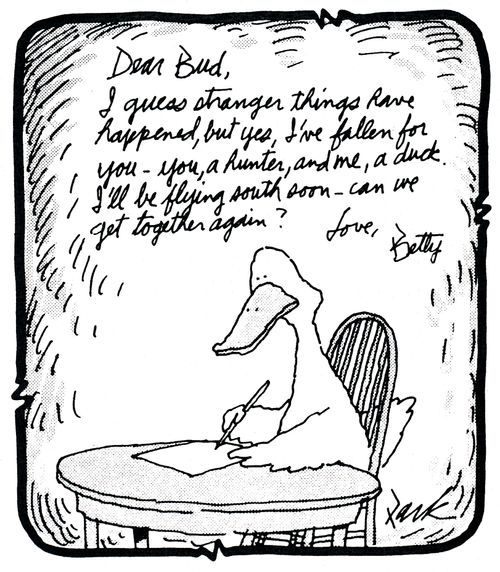 Dear Bud,
I guess stranger things have
happened, but yes, I've fallen for
you - you, a hunter, and me, a duck.
I'll be flying south soon - can we
get together again?
Love,
Betty